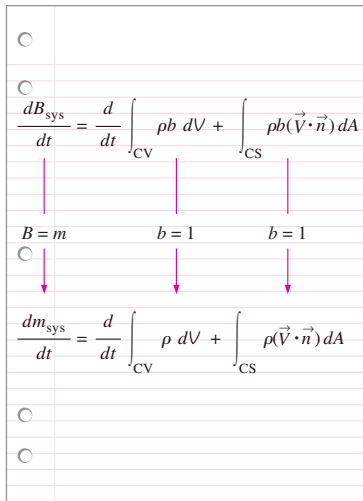 dB_sys/dt = d/dt ∫_CV ρb dV̶ + ∫_CS ρb(V⃗ · n⃗) dA
B = m b = 1 b = 1
dm_sys/dt = d/dt ∫_CV ρ dV̶ + ∫_CS ρ(V⃗ · n⃗) dA